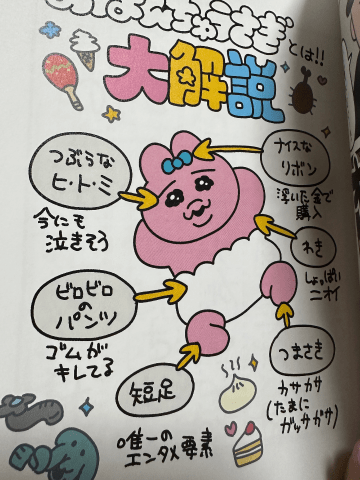 おぱんちゅうさぎ
とは!!
大解説
つぶらな
ヒ・ト・ミ
今にも
泣きそう
ナイスな
リボン
浮いた金で
購入
わき
しょっぱい
ニオイ
ビロビロ
の
パンツ
ゴムが
キレてる
つまさき
カサカサ
(たまに
ガッサガサ)
短足
唯一の
エンタメ要素